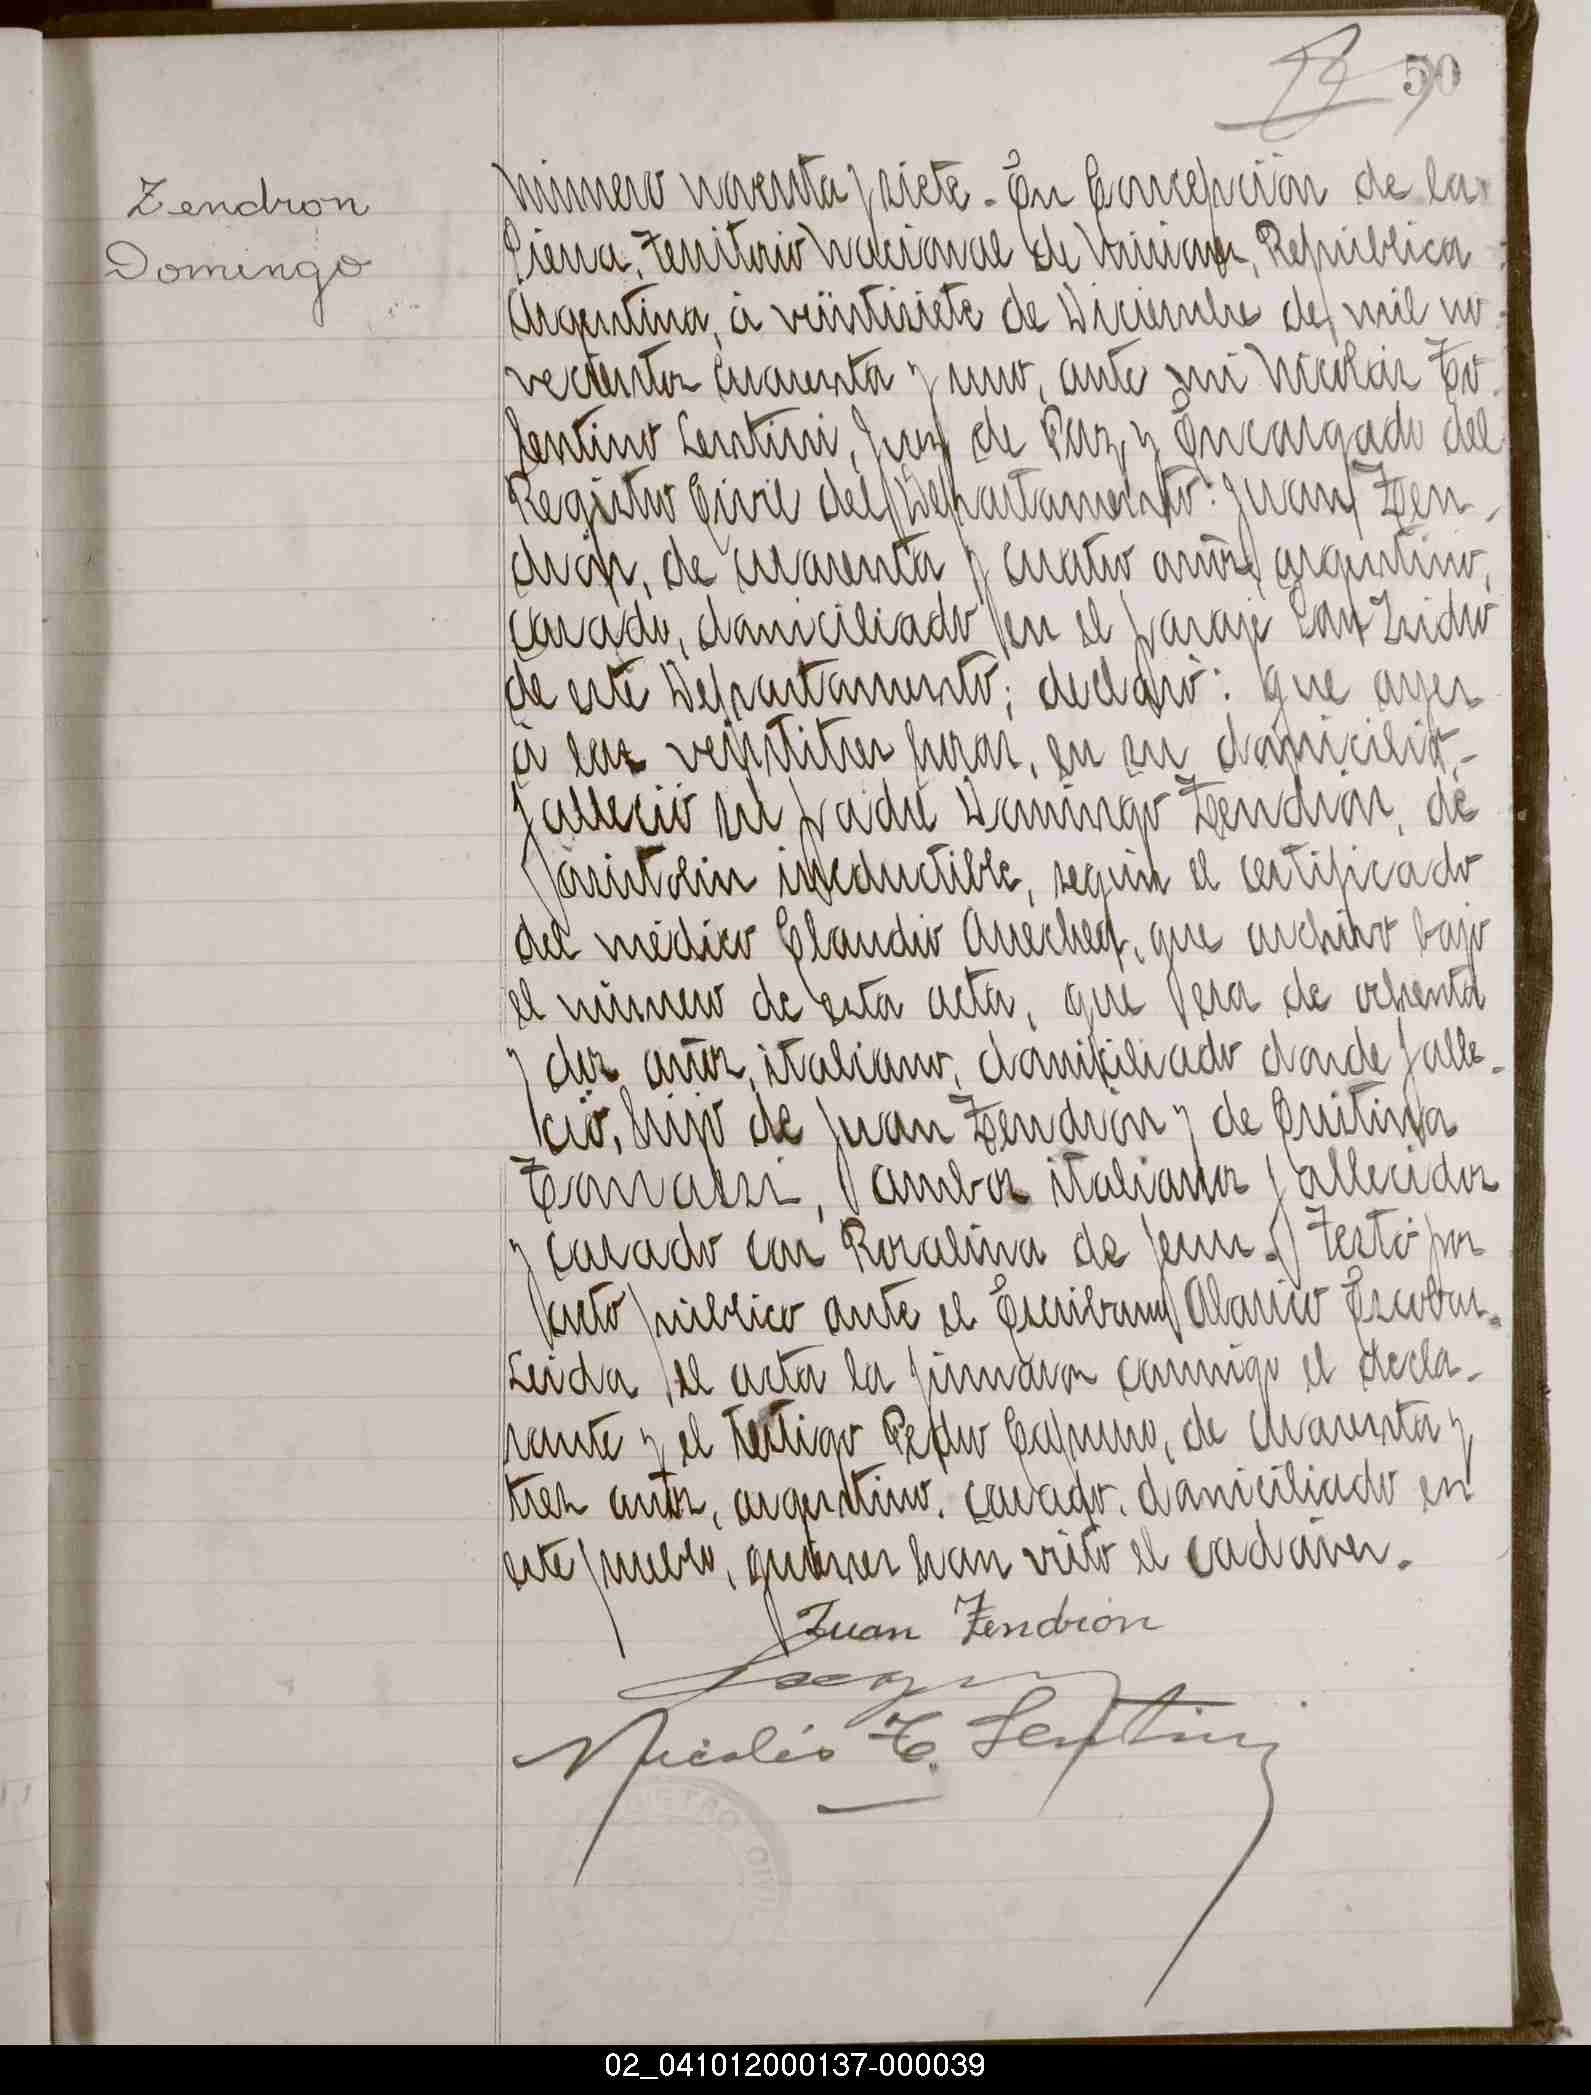 50
Zendron
Domingo
Número noventa y siete. En Concepción de la
Sierra, Territorio Nacional de Misiones, República
Argentina, á veintisiete de Diciembre de mil no-
vecientos cuarenta y uno, ante mi Nicolás To-
lentino Lentini, Juez de Paz y Encargado del
Registro Civil del Departamento: Juan Zen-
drón, de cuarenta y cuatro años, argentino,
casado, domiciliado en el paraje San Isidro
de este Departamento; declaró: que ayer
á las veintitres horas, en su domicilio,-
falleció su padre Domingo Zendrón, de
asistolia ireductible, según el certificado
del médico Claudio Arrechea, que archivo bajo
el número de esta acta, que era de ochenta
y dos años, italiano, domiciliado donde falle-
ció, hijo de Juan Zendrón y de Cristina
Tomassi, ambos italianos fallecidos
y casado con Rosalina de Jesus. Testó por
acto público ante el Escribano Alarico Escobar.
Leida el acta la firmaron conmigo el decla-
rante y el testigo Pedro, de cuarenta y
tres años, argentino, casado, domiciliado en
este pueblo, quienes han visto el cadáver.
Juan Zendrón
Nicolás T. Lentini
02_041012000137-000039